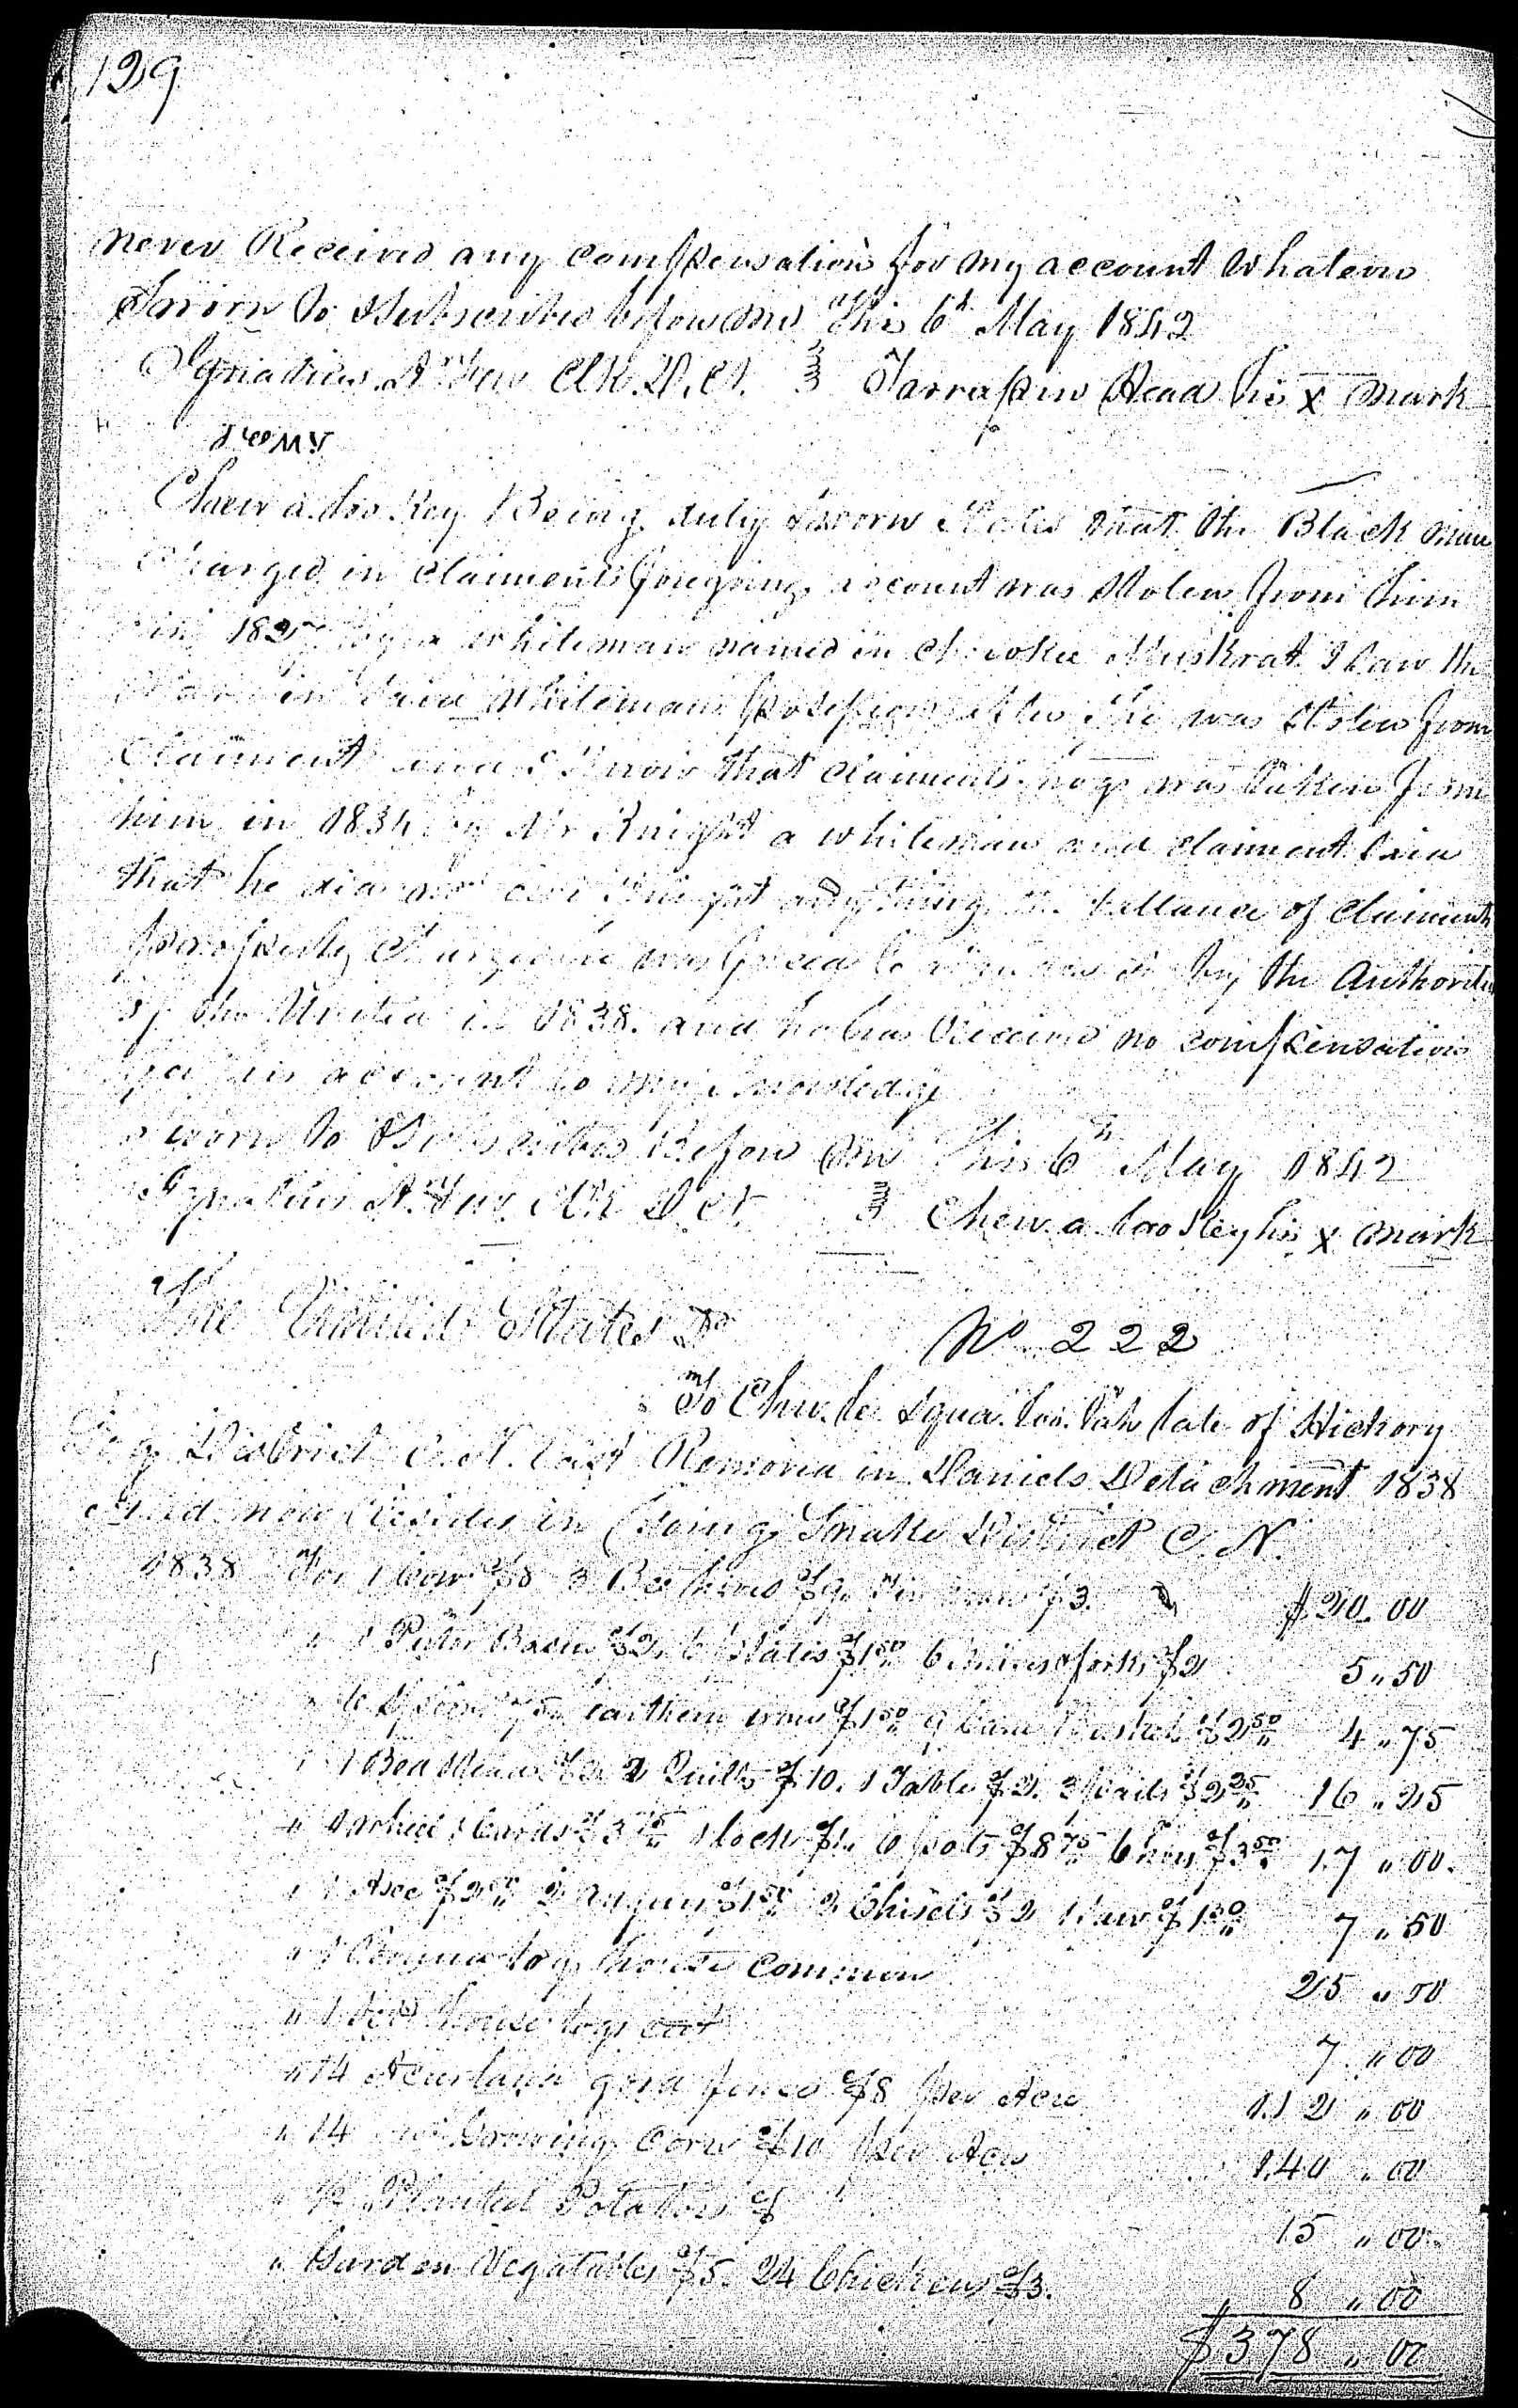 129
never Received any compensation for my account whatever
Sworn to & Subscribed before me This 6th May 1842
Ignatius A. Few Clk. D. Ct. Tarrapin Head his x mark
Chew a. loo. Key Being duly Sworn States that the Black mare
Charged in claiments foregoing account was Stolen from him
in by a whiteman named in Cherokee Muskrat I saw the
Mare in Said Whitemans possession after She was Stolen from
Claiment and I know that claiments hogs was taken from
him in 1834 by Mr Knight a whiteman and claiment Said
that he did not owe Knight any thing the ballance of claiments
property Charged was by the Authorities
of the United in 1838. and he has Received no compensation
for his account to my Knowledge
Sworn to & Subscribed Before me This 6th May 1842
Ignatius A. Few. Clk D Ct. Chew. a. loo Key his x mark
The United States Dr
No. 222
To Chu. le. squa. loo. tah late of Hickory
Log District C. N. East Removed in Daniels Detachment 1838
and now Resides in Going Snake District C. N.
1838 For 1 Cow $8 3 Bee hives $9. Tin ware $3. $20.00
" 1 Puter Basin $2. 6 plates $1.50 6 knives & forks $2 5"50
" 6 Spoons 75 earthern ware $1.50 9 Cane Baskets $2.50 4"75
" 1 Bedstead $2. 2 Quilts $10. 1 Table $2. 3 pails $2.25 16"25
" 1 wheel & Cards $3.75 1 lock $1. 6 pots $8.75 6 hoes $3.50 17"00.
" 1 Axe $2.50 2 Augurs $1.50 2 Chisels $2 1 Saw $1.50 7"50
" 1 log house common 25"00
" 1 house logs cut 7"00
" 14 Acres land good fence $8 per Acre 112"00
" 14 " Growing Corn $10 per Acre 140"00
" 1/2 " Planted Potatoes $ 15"00
" Garden Vegatables $5. 24 Chickens $3. 8"00
$378"00